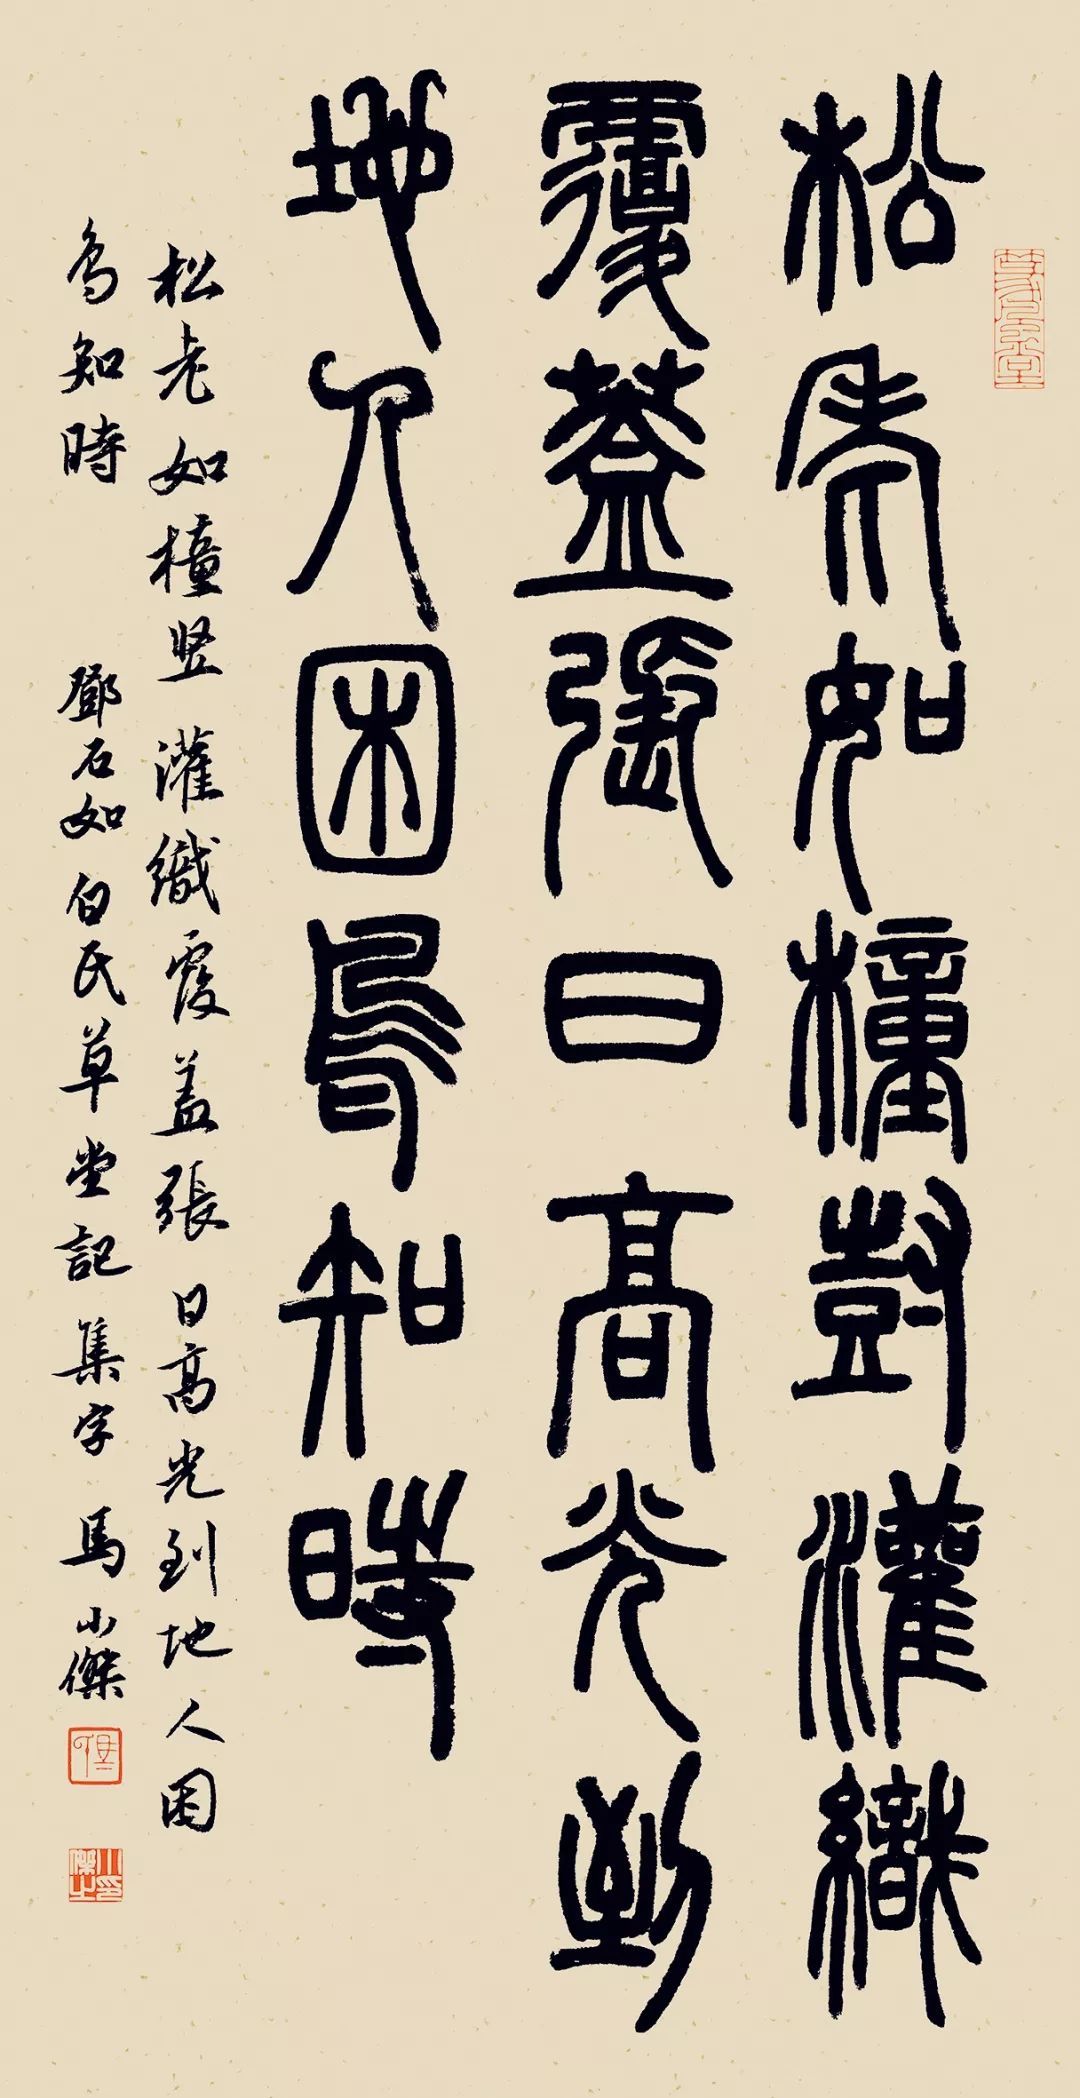 松老如橦尌灌織
覆蓋張日高光到
地人困鳥知時
松老如橦竖灌織覆盖張日高光到地人困
鳥知時 鄧石如白氏草堂記集字馬小傑